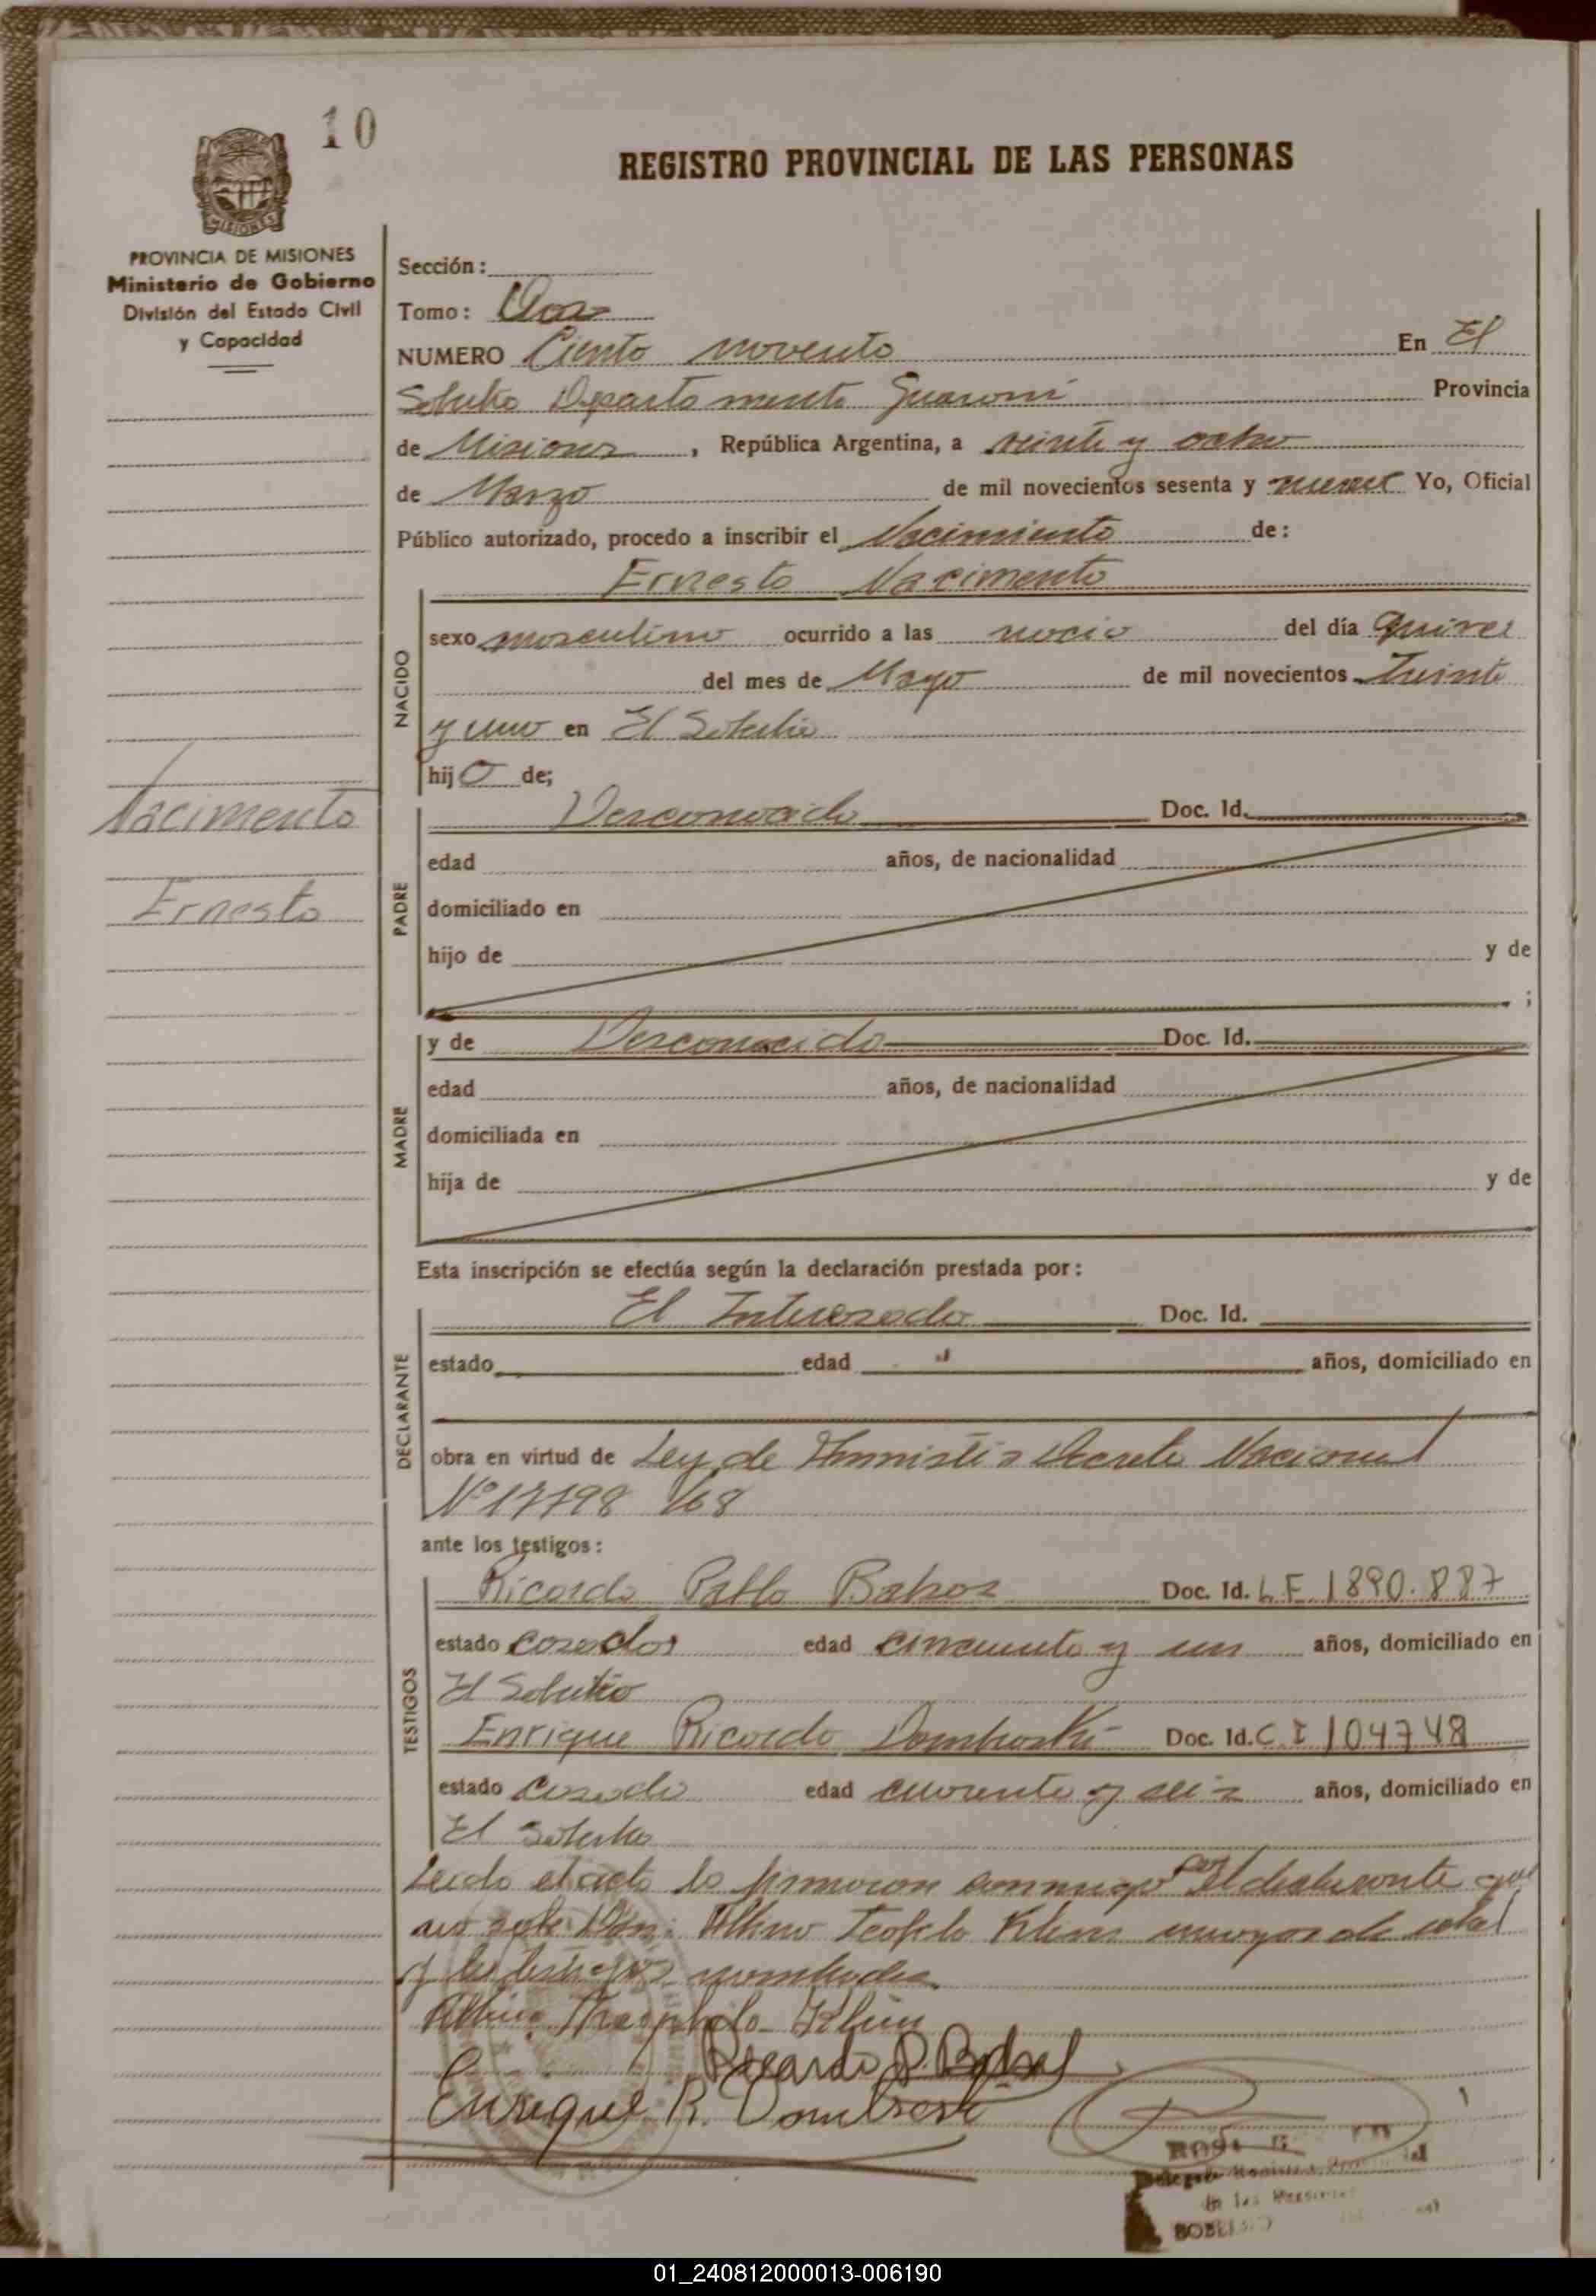 10
REGISTRO PROVINCIAL DE LAS PERSONAS
PROVINCIA DE MISIONES
Ministerio de Gobierno
División del Estado Civil
y Capacidad
Sección:
Tomo: Dos
NUMERO Ciento noventa En El
Soberbio Departamento Guaraní Provincia
de Misiones, República Argentina, a veinte y ocho
de Marzo de mil novecientos sesenta y nueve Yo, Oficial
Público autorizado, procedo a inscribir el Nacimiento de:
Ernesto Nacimento
NACIDO
sexo masculino ocurrido a las del día quince
del mes de Mayo de mil novecientos Treinta
y uno en El Soberbio
hijo de;
Nacimento
Ernesto
PADRE
Desconocido Doc. Id.
edad años, de nacionalidad
domiciliado en
hijo de y de
;
MADRE
y de Desconocido Doc. Id.
edad años, de nacionalidad
domiciliada en
hija de y de
Esta inscripción se efectúa según la declaración prestada por:
DECLARANTE
El Interesado Doc. Id.
estado edad años, domiciliado en
obra en virtud de Ley de Amnistia Decreto Nacional
Nº 17798 /68
ante los testigos:
TESTIGOS
Ricardo Pablo Doc. Id. L.E 1890.887
estado casados edad cincuenta y un años, domiciliado en
El Soberbio
Enrique Ricardo Domboski Doc. Id. C I 104748
estado casado edad cuarenta y seis años, domiciliado en
El Soberbio
Leido el acta lo firmaron conmigo por el declarante que
no sabe Don: Albino Teofilo Klein mayor de edad
y los testigos nombrados
Albino Theophilo Klein
Ricardo P.
Enrique R.
01_240812000013-006190